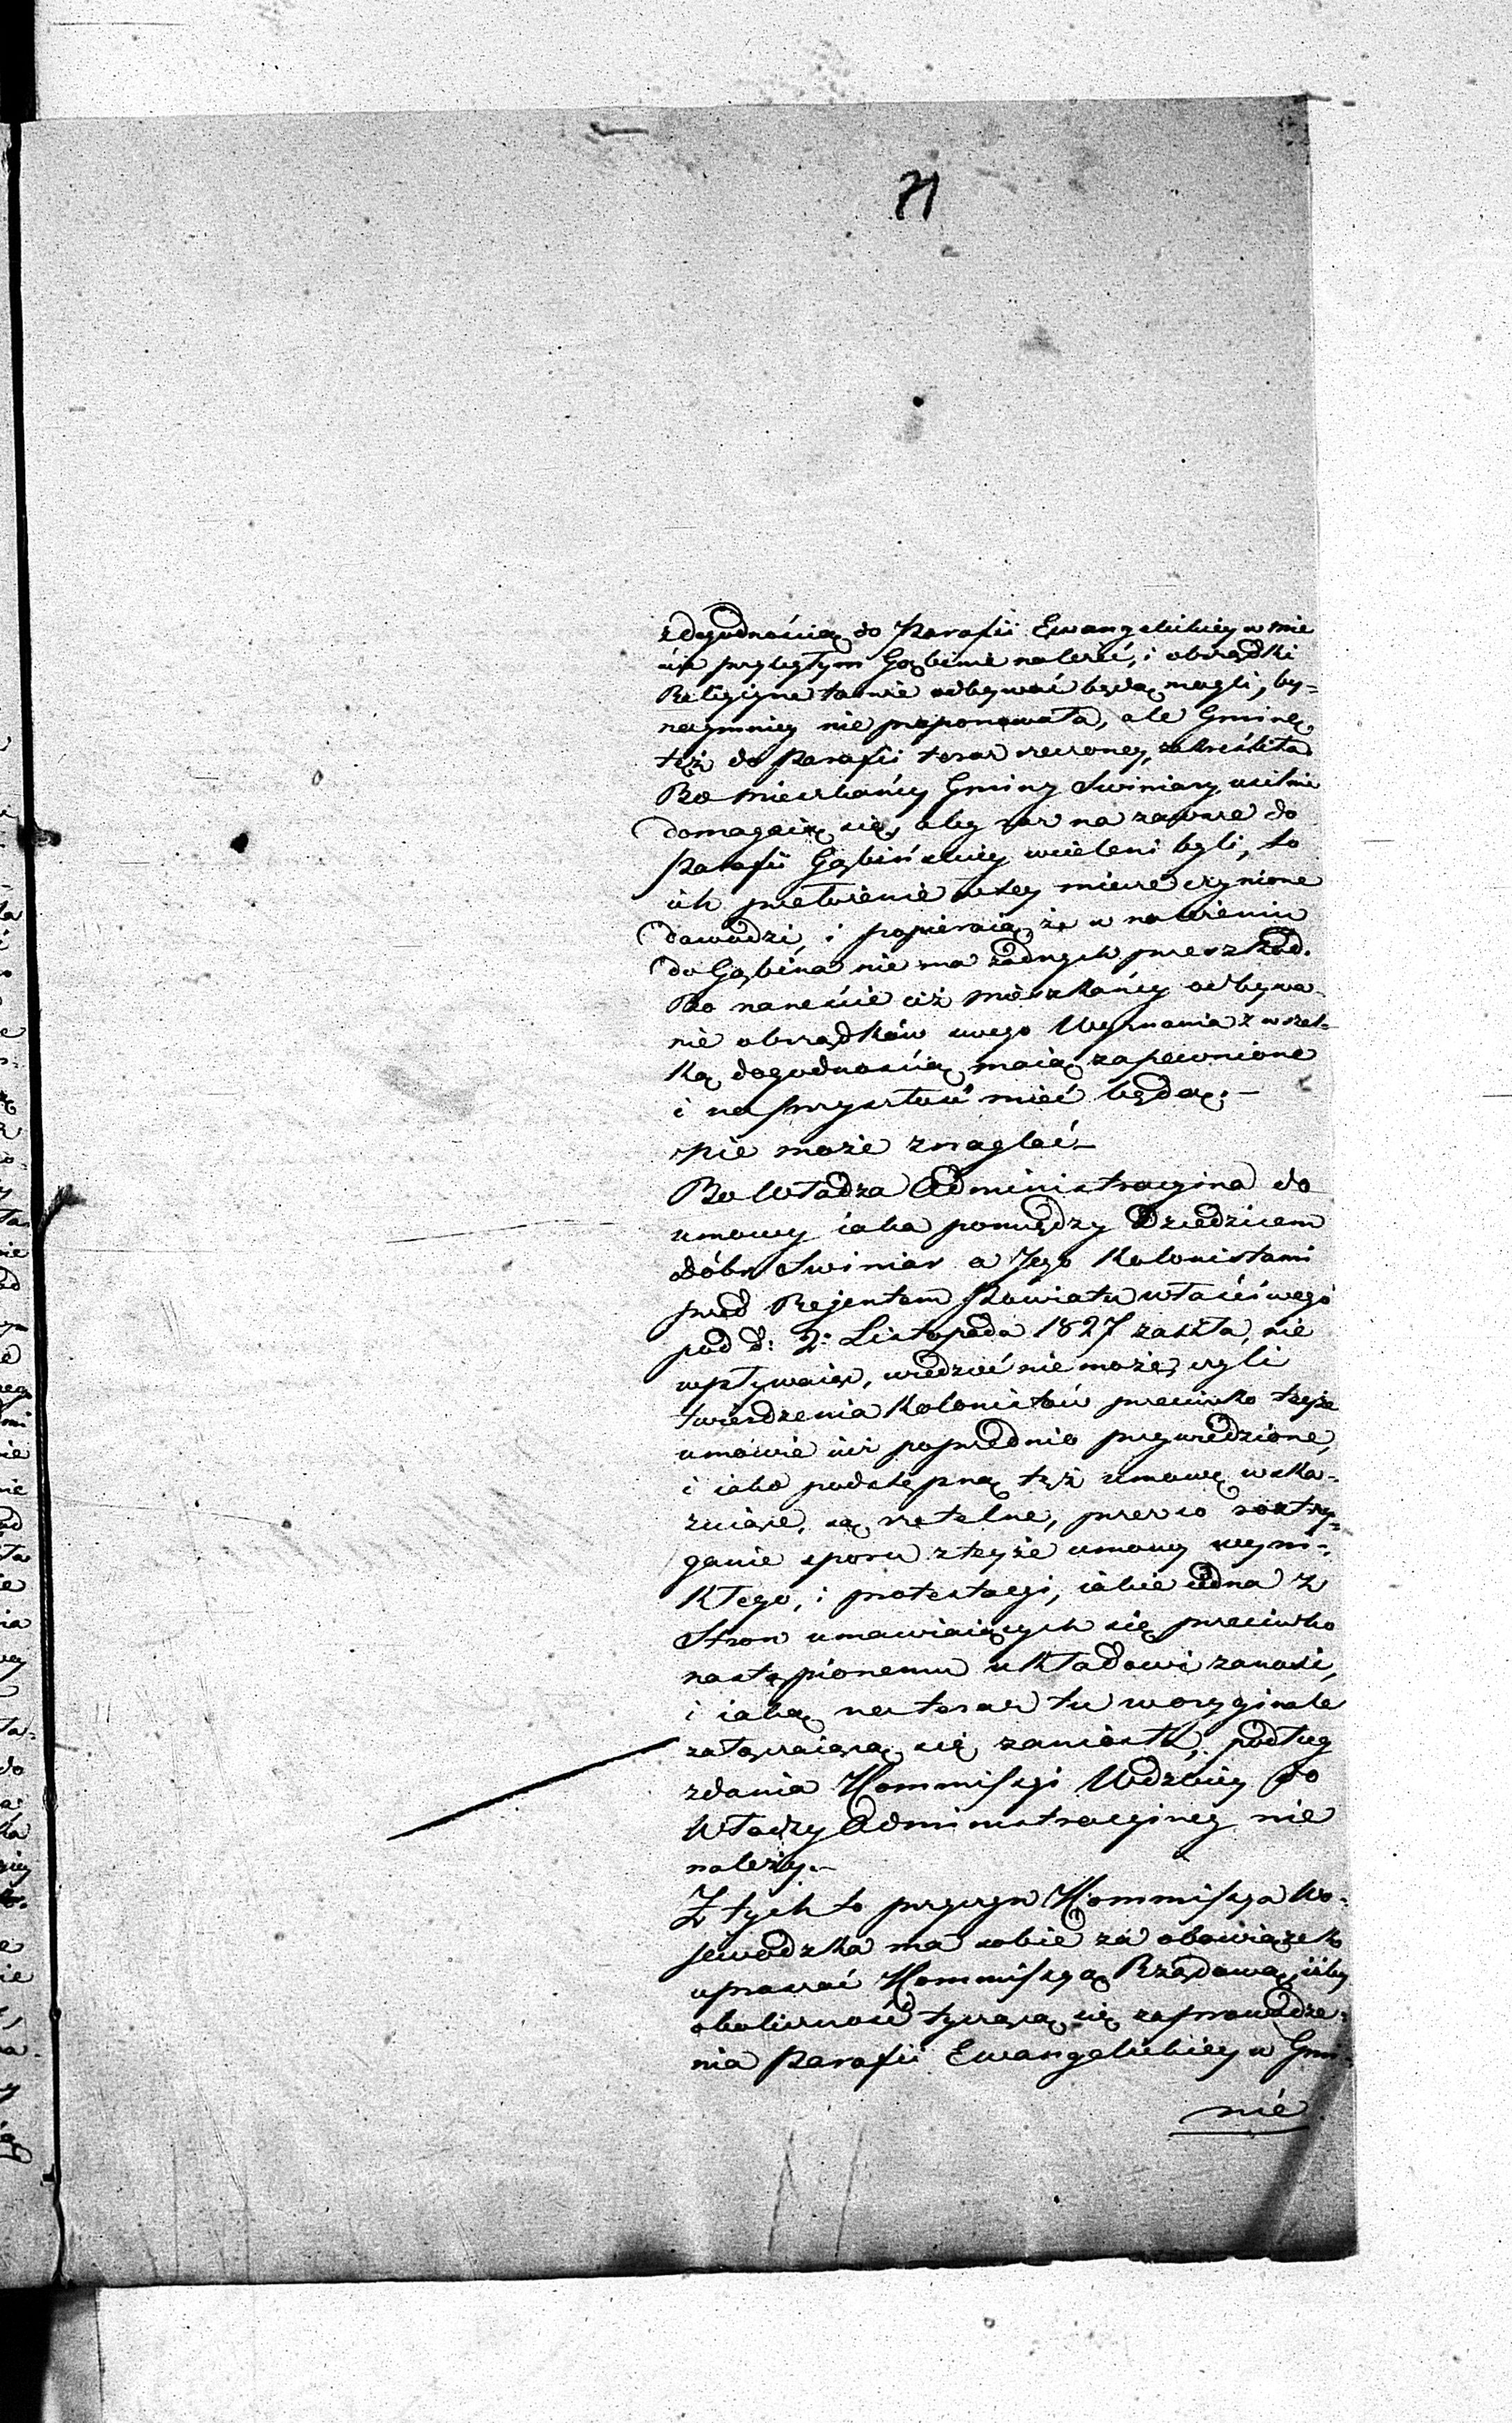 71
z dogodnością do Parafii Ewangelickiey w mie
ście przyległym Gąbinie należeć, i obrządki
Religijne tamie odbywać będą mogli, by-
naymniey nie proponowała, ale Gminę
tęż do Parafii teraz rzeczoney, zakreśliła
Bo mieszkańcy Gminy Swiniary, usilnie
domagaią się, aby raz na zawsze do
Parafii Gąbińskiey wcieleni byli, to
ich przełożenie w tey mierze czynione
dowodzi, i popieraią, że w należeniu
do Gąbina nie ma żadnych przeszkod.
Bo nareście ciż mieszkańcy odbywa-
nie obrządków swego Wyznania z wszel-
ką dogodnością maią zapewnione
i na przyszłość mieć będą.-
Nie może znaglać-
Bo Władza Administracyjna do
umowy iaka pomiędzy Dziedzicem
dóbr Swiniar a Jego Kolonistami
przed Rejentem Powiatu właściwego
pod d: 2: Listopada 1827 zaszła, nie
wpływaiąc, wiedzieć nie może, czyli
twierdzenia Kolonistów przeciwko teyże
umowie iuż poprzednio przywiedzione,
i iako podstępną tęż umowę wska-
zuiące, są rzetelne, przeco roztrzy-
ganie sporu z teyże umowy wyni-
kłego, i protestacyi, iakie iedna z
Stron umawiaiących się przeciwko
nastąpionemu układowi zanosi,
i iaką na teraz tu w oryginale
załączaiącą się zaniosła, podług
zdania Kommissyi Wdzkiey do
Władzy Administracyiney nie
należy.-
Z tych to przyczyn Kommissya Wo-
jewodzka ma sobie za obowiązek
upraszać Kommissyą Rządową, iżby
okoliczność tyczącą się zaprowadze-
nia Parafii Ewangelickiey w Gmi-
nie